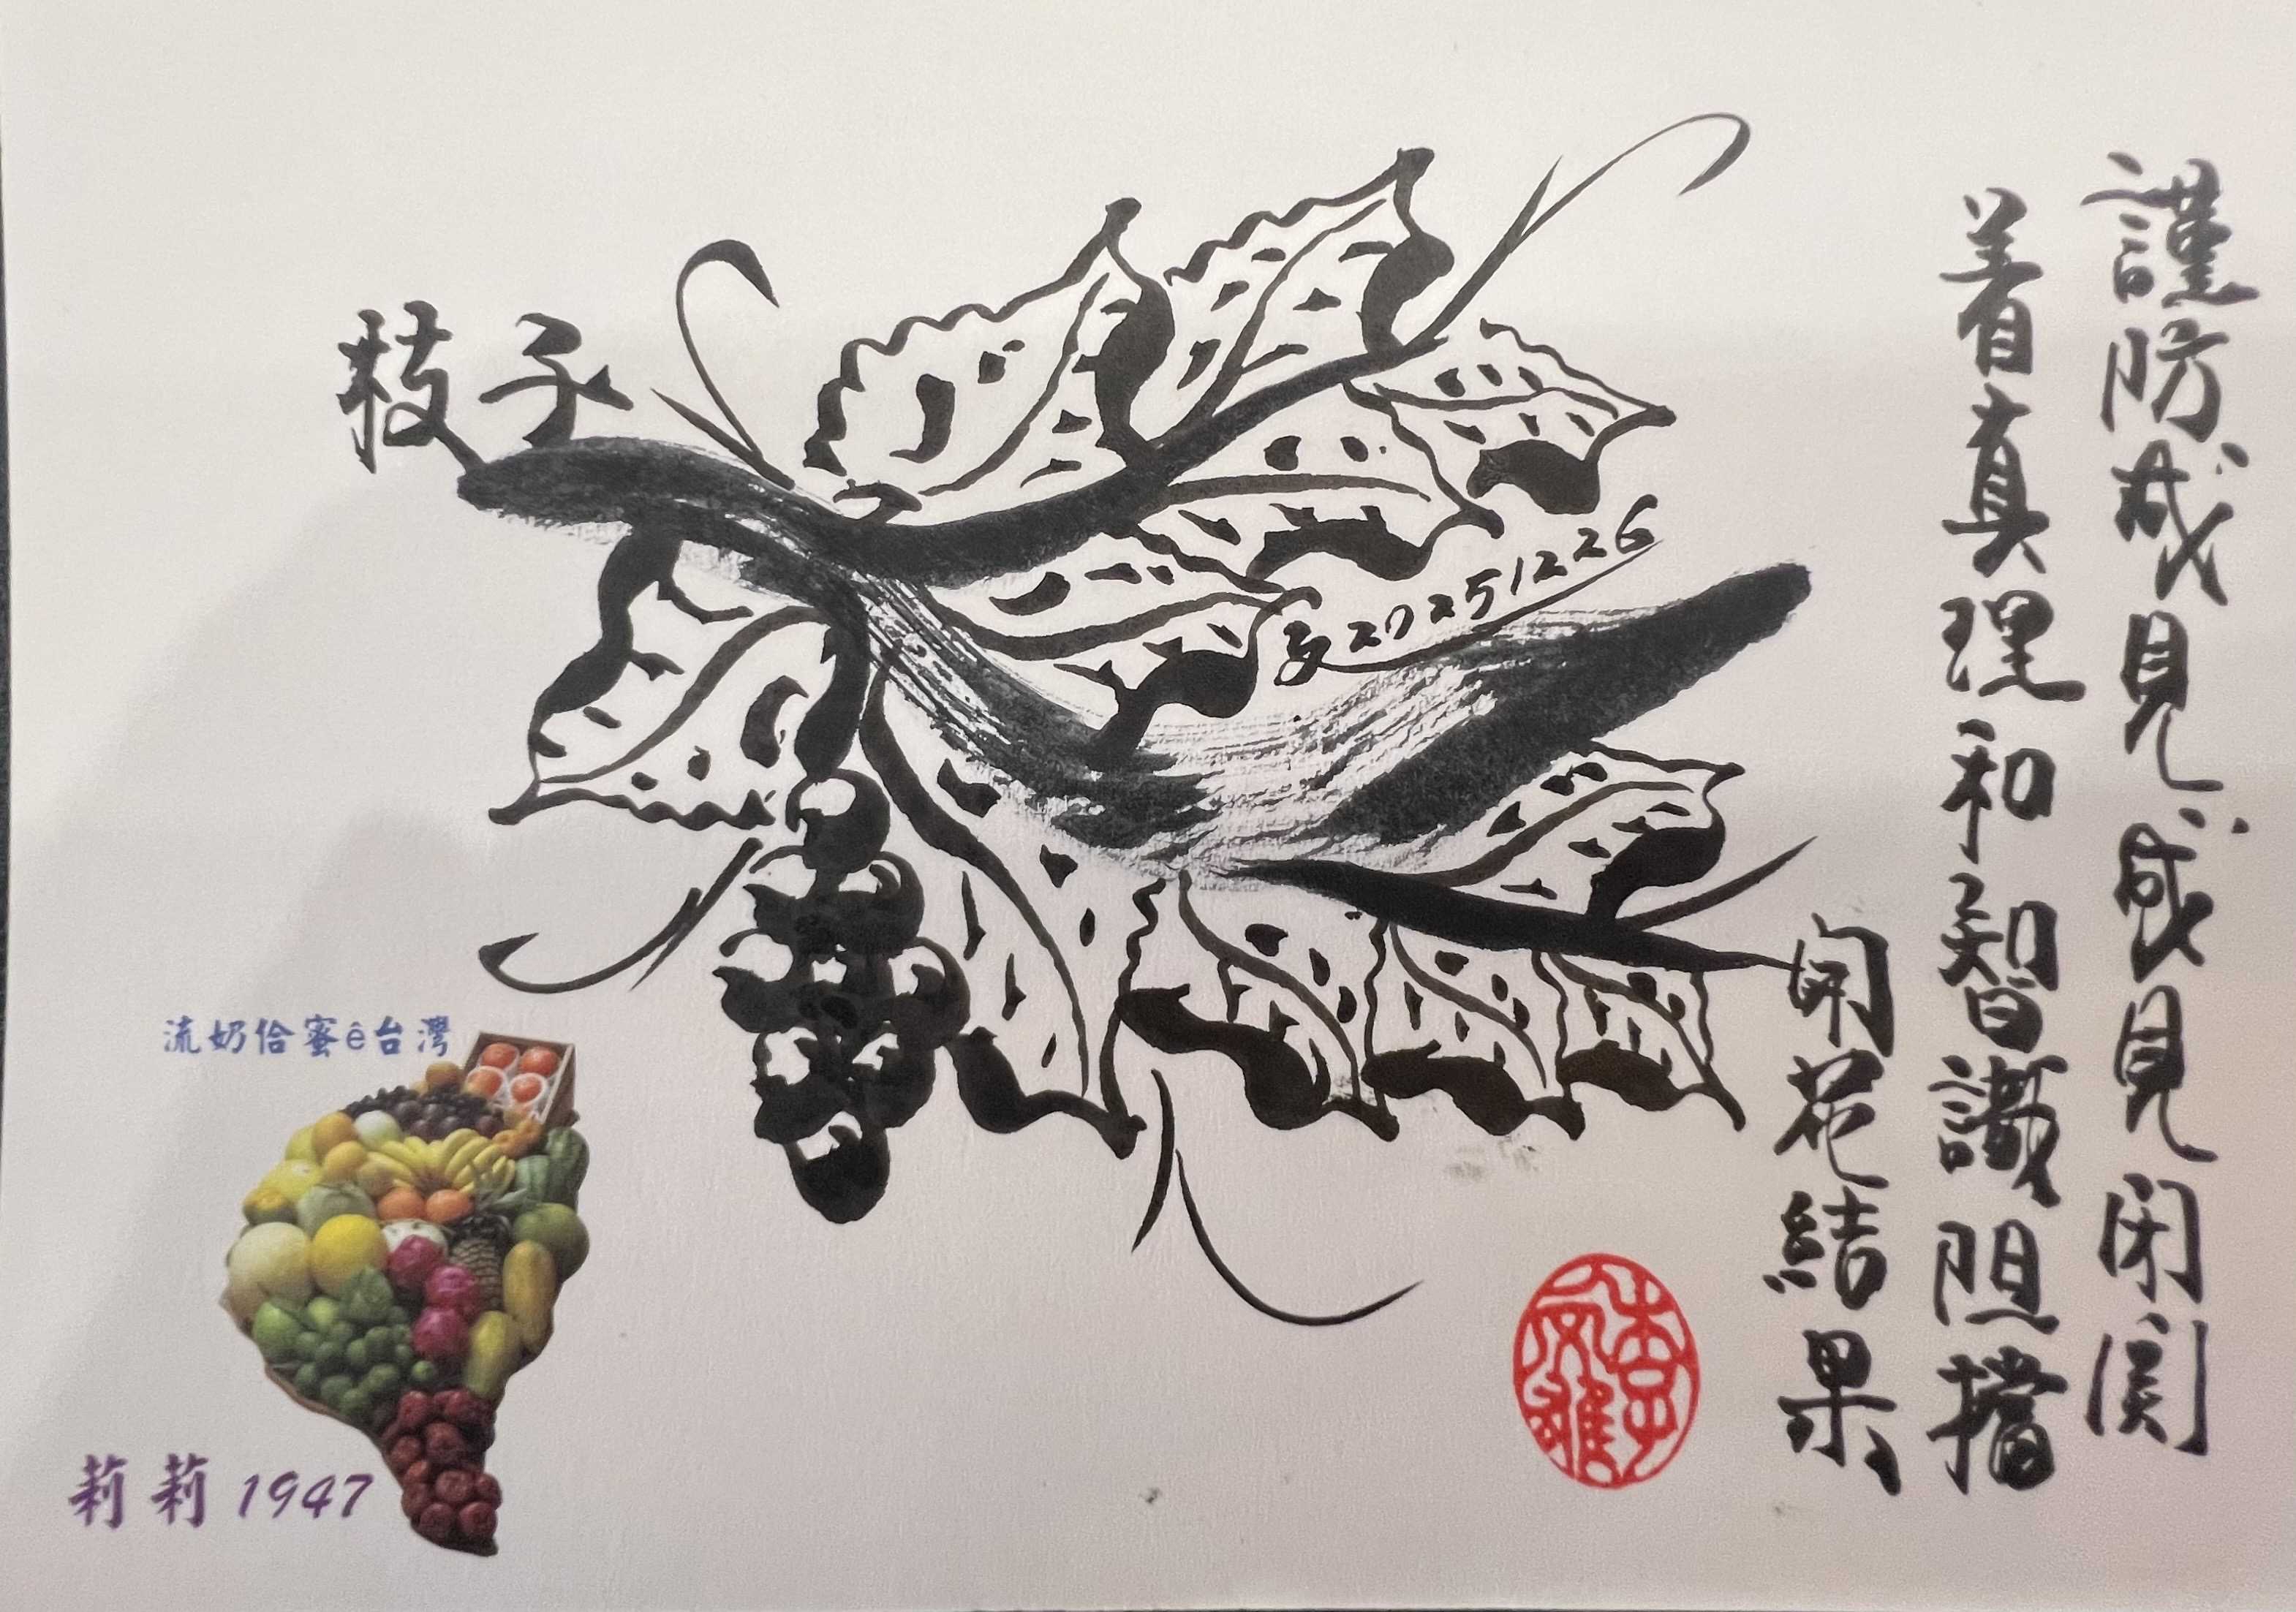 謹防成見 見閉関
着真理和智識阻擋
開花結果
枝子
20251226
流奶佮蜜ê台灣
莉莉 1947